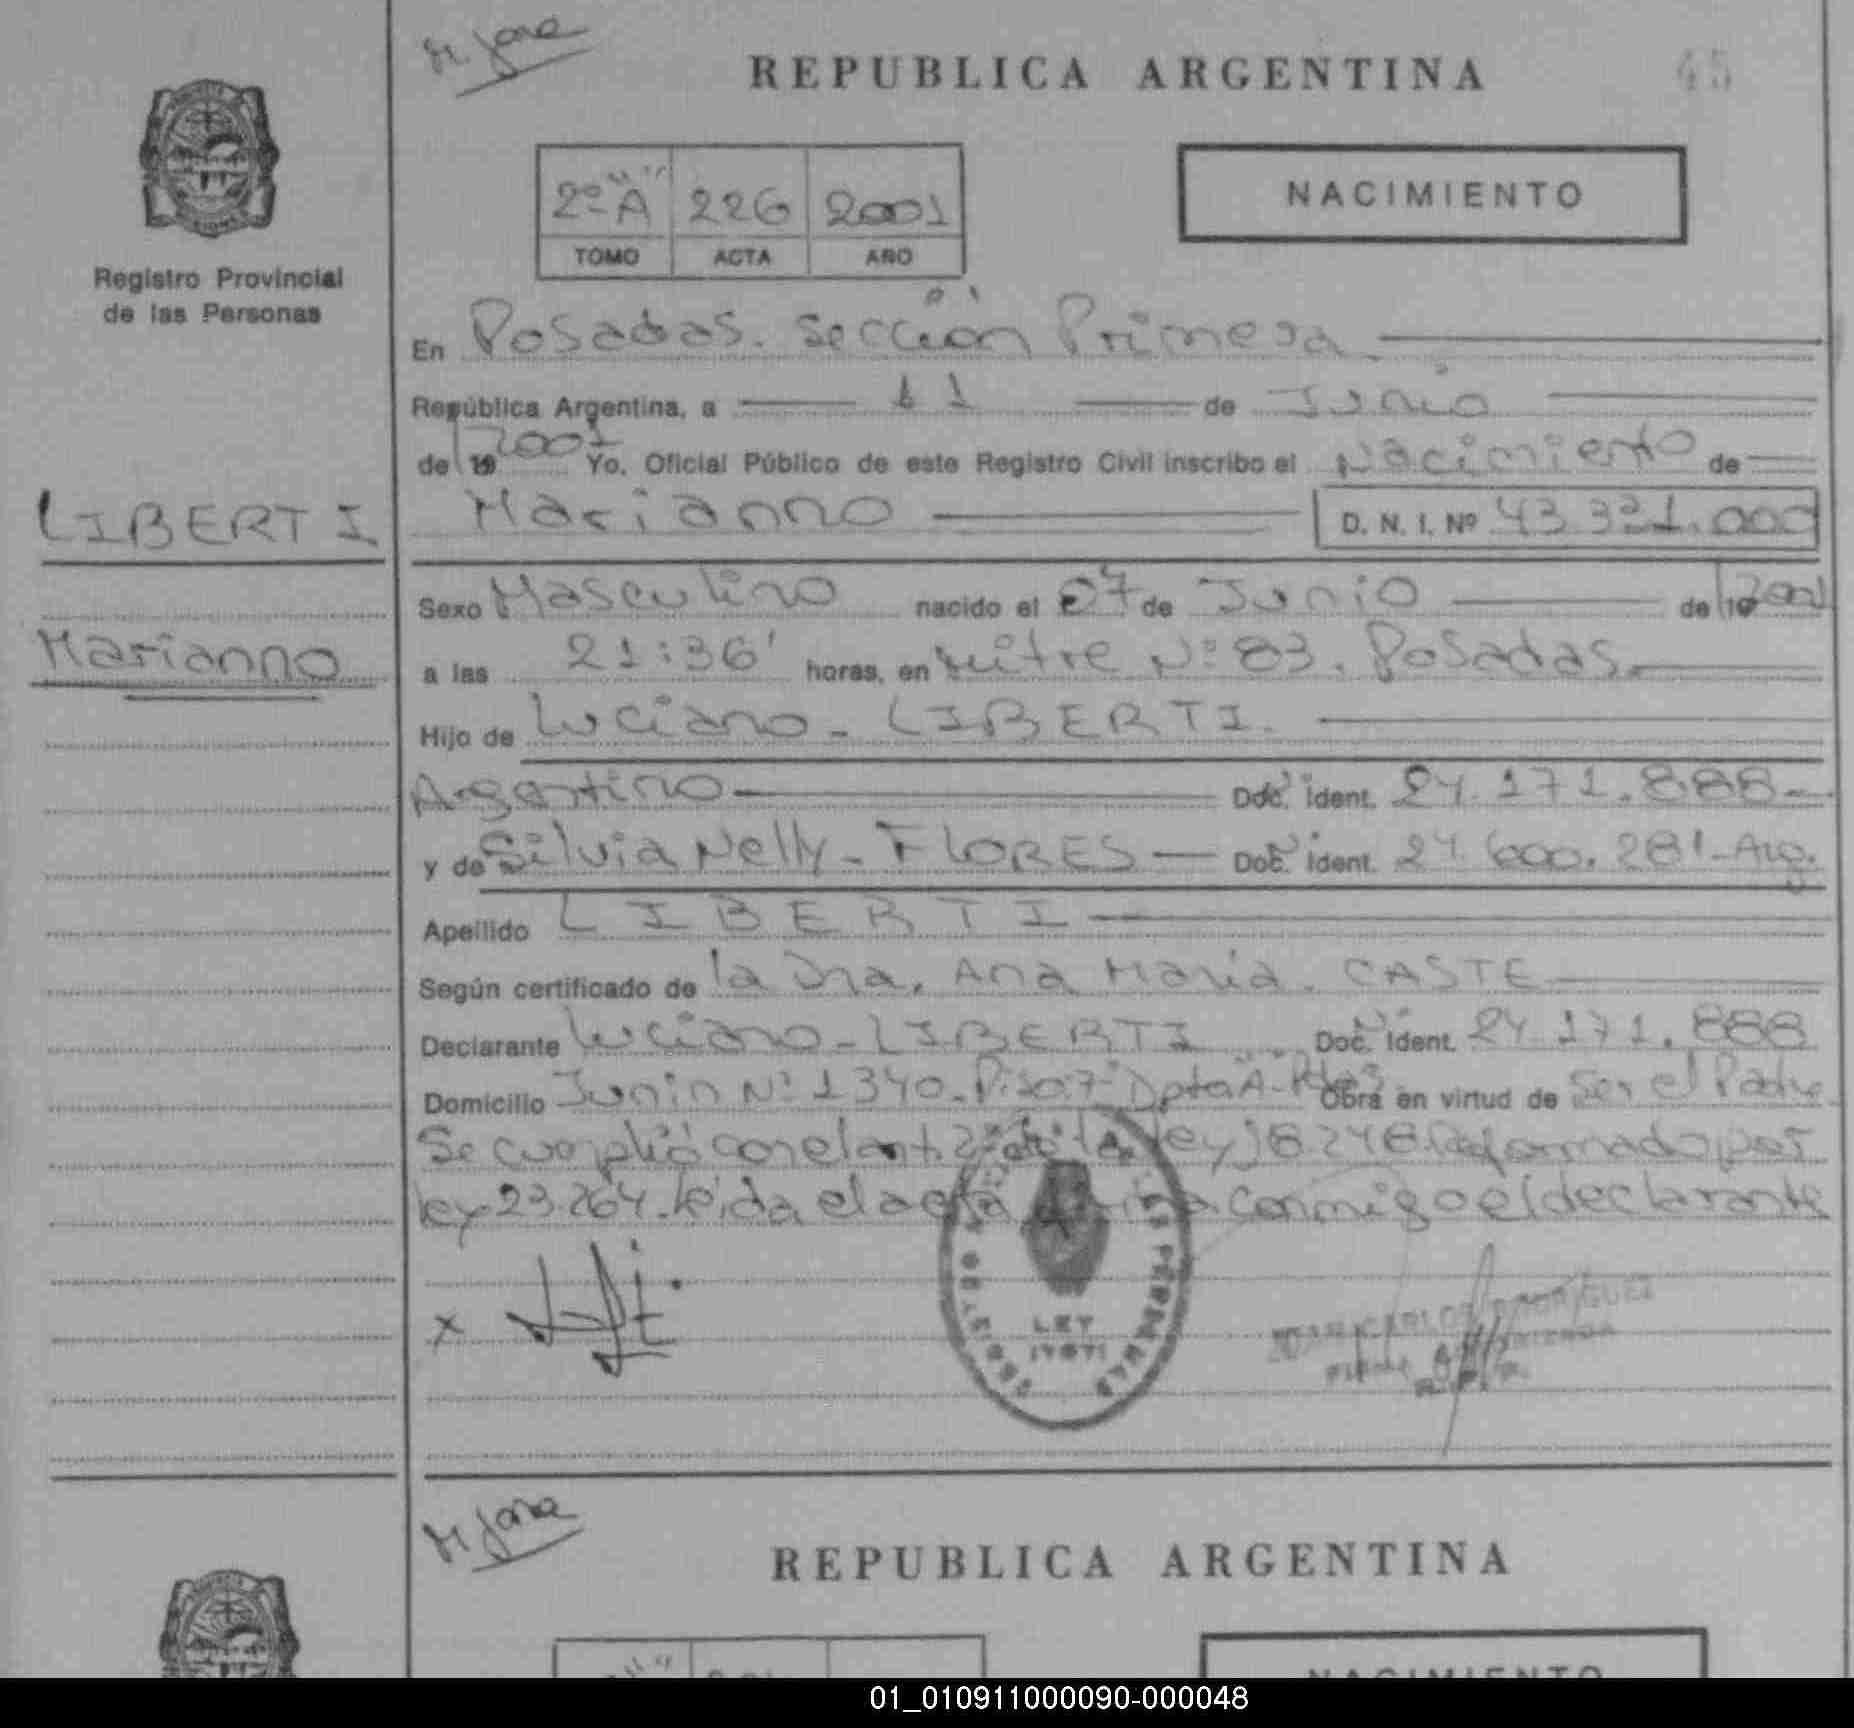 REPUBLICA ARGENTINA
45
2º "A" 226 2001
TOMO ACTA AÑO
NACIMIENTO
Registro Provincial
de las Personas
En Posadas. Sección Primera.
República Argentina, a 11 de Junio
de 19 2001 Yo, Oficial Público de este Registro Civil inscribo el Nacimiento de
LIBERTI
Marianno D. N. I. Nº 43.321.000
Sexo Masculino nacido el 07 de Junio de 19 2001
Marianno
a las 21:36' horas, en Mitre Nº 83. Posadas.
Hijo de Luciano - LIBERTI.
Argentino Doc. Ident. 24.171.888-
y de Silvia Nelly - FLORES Doc. Ident. 24.600.281-Arg.
Apellido LIBERTI
Según certificado de la Dra. Ana María. CASTE
Declarante Luciano - LIBERTI Doc. Ident. 24.171.888
Domicilio Junin Nº 1340. Piso 7 Dpto "A" - Pdas Obra en virtud de Ser el Padre
Se cumplió con el art. 2º de la Ley 18.248 Reformado por
Ley 23.264. Leida el acta conmigo el declarante
x
LEY
CARLOS RODRIGUEZ
REPUBLICA ARGENTINA
NACIMIENTO
01_010911000090-000048